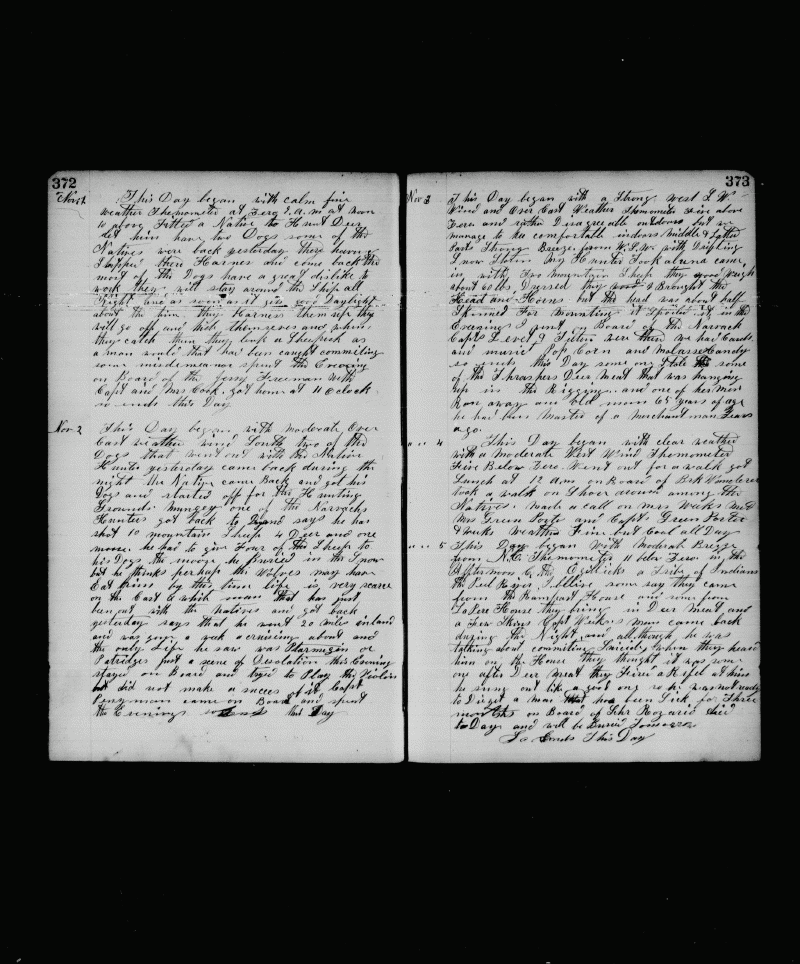 372
Nov 1
This Day began with calm fine
weather Themometer at Zero 8. A. m at Noon
10 above Fitted a Native to Hunt Deer
let him have two Dogs some of the
Natives were back yesterday they having
Slipped there Harnes and come back the
most of the Dogs have a great dislike to
work they will stay around the Ship all
Night and as soon as it gits good Daylight
about the time they Harness them up they
will go off and hide themselves and when
they catch them they look a Sheepish as
a man would that had been caught commiting
some misdemeanor spent the Evening
on Board of the Jerry Freeman with
Capt and Mrs Cook. got home at 11 Oclock
so ends this Day
Nov. 2
This Day began with moderate Over
Cast weather wind South two of the
Dogs that went out with the Native
Hunter yesterday came back during the
night the Native came Back and got his
Dogs and started off for the Hunting
Grounds one of the Narvachs
Hunters got back to Day and says he has
shot 10 mountain Sheep 4 Deer and one
moose. he had to give Four of the Sheep to
his Dogs the moose he Buried in the Snow
but he thinks perhaps the Wolves may have
Eat by this time life is very scarce
on the Cost a white man that has just
ben out with the natives and got back
yesterday says that he went 20 miles inland
and was gone a week a cruising about and
the only life he saw was Ptarmigan or
Patridges just a scene of Desolation this Evening
stayed on Board and tryed to Play the Violin
but did not make a succes of it Capt
Pennyman came on Board and spent
the Evening so Ends this Day
373
Nov 3
This Day began with a Strong West S. W.
Wind and Over Cast Weather Themometer Five above
Zero and rather Disagreeable outdoors but we
manage to be comfortable indoors Middle & Latter
Parts Strong Breeze from W.S.W. with Drifting
Snow Storm My Hunter Took aluna came
in with Two Mountain Sheep they weigh
about 60 lbs, Dressed they Brought the
Head and Hoens but the head was about half
Skinned For Mounting it Spoiled it in the
Evening I went on Board of the Narvach
Capts Levet & Tilton were there we had Cards
and music Pop Corn and Molasses Candy
so ends this Day some one Stole some
of the Thrashers Deer Meat that was hanging
up in the Rigging and one of her men
Ran away an Old man 65 years of age
he had been Master of a merchant man Years
ago.
" " 4
This Day began with clear weather
with a Moderate West Wind Themometer
Five Below Zero Went out for a walk got
Lunch at 12 Am on Board of Bark Wanderer
took a walk on Shore around among the
Natives. made a call on Mrs Weeks and
Mrs Green Porter and Capts Green Porter
& Weeks Weather Fine but Cool all Day
" " 5
This Day began With Moderate Breeze
from N.E. Themometer 11 below Zero in the
Afternoon the a Tribe of Indians
the Peel River some say they came
from the Rampart House and some from
La Pere House they bring in Deer Meat and
a Few Skins Capt Weeks's man came back
during the Night and although he was
talking about commiting Suicide when they heard
him on the House they thought it was some
one after Deer Meat they Fired a Rifel at him
he sung out like a good one so he was not ready
to Die yet a man that has been Sick for Three
months on Board of Schr Rozario Died
to Day and will be Buried Tomorrow
So Ends This Day